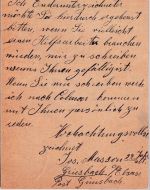 Ich Endunterzeichneter
möchte Sie hierdurch ergebenst
bitten, wenn Sie vielleicht
einen Hilfsarbeiter brauchen
würden, mir zu schreiben
wenns Ihnen gefälligst.
Wenn Sie mir schreiben werde
ich nach Colmar kommen
mit Ihnen persönlich zu
reden.
Hochachtungsvollst
zeichnet
Jos. Masson
Griesbach
Post Günsbach